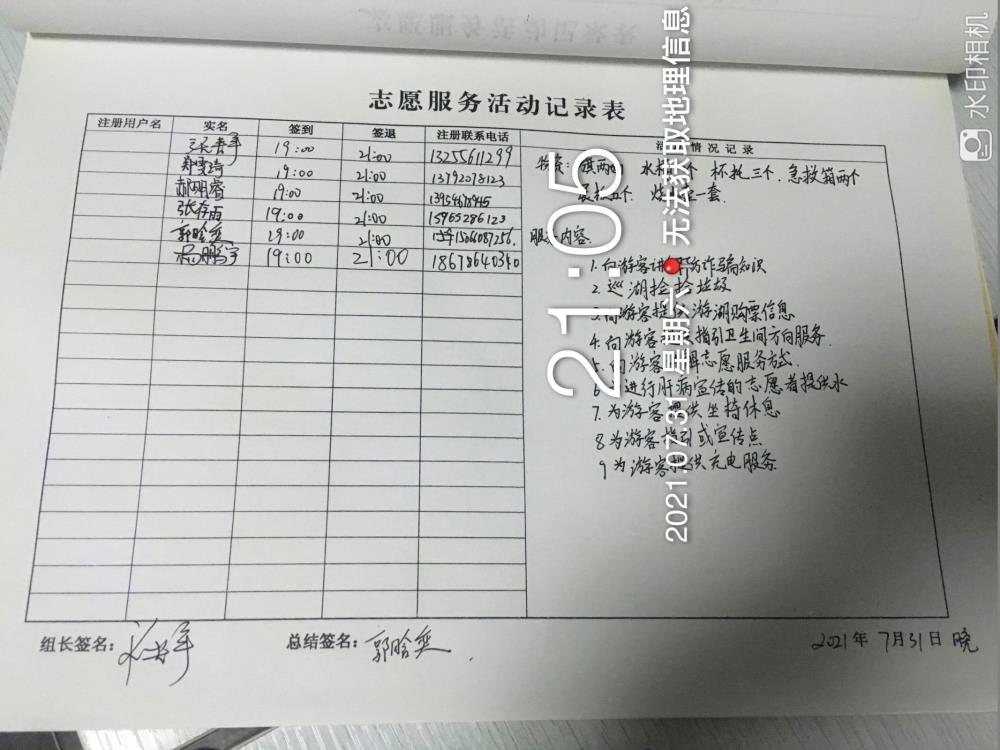 志愿服务活动记录表
注册用户名 实名 签到 签退 注册联系电话 情况记录
19:00 21:00 13255611299
19:00 21:00 13792078123
19:00 21:00
张存雨 19:00 21:00 15965286123
郭晗奕 19:00 21:00 15266087256
19:00 21:00 18678640340
水 个 杯托三个 急救箱两个
一套
服务内容
1.向游客讲 防诈骗知识
2 巡湖捡拾垃圾
3 向游客提供游湖购票信息
4.向游客 指引卫生间方向服务
5.向游客 解志愿服务方式
6 进行肝病宣传的志愿者提供水
7.为游客提供坐椅休息
8 为游客指引或宣传点
9 为游客提供充电服务
组长签名: 总结签名: 郭晗奕
2021年7月31日 晚
21:05
2021.07.31 星期六 无法获取地理信息
水印相机